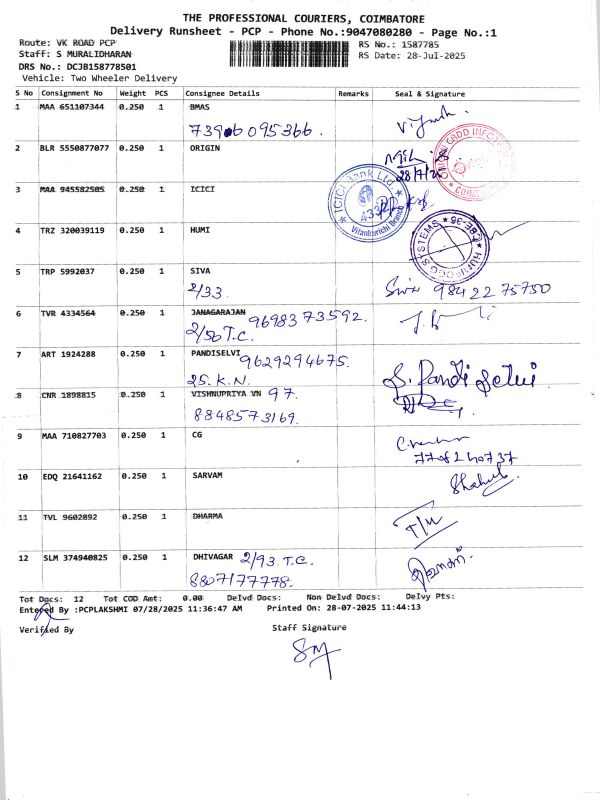 THE PROFESSIONAL COURIERS, COIMBATORE
Delivery Runsheet - PCP - Phone No.:9047080280 - Page No.:1
Route: VK ROAD PCP RS No.: 1587785
Staff: S MURALIDHARAN RS Date: 28-Jul-2025
DRS No.: DCJB158778501
Vehicle: Two Wheeler Delivery
S No Consignment No Weight PCS Consignee Details Remarks Seal & Signature
1 MAA 651107344 0.250 1 BMAS
2 BLR 5550877077 0.250 1 ORIGIN
28/7/25
3 MAA 945582505 0.250 1 ICICI
ICICI Bank Ltd.
Vilankurichi Branch
4 TRZ 320039119 0.250 1 HUMI
5 TRP 5992037 0.250 1 SIVA
2/33. Siva 98422 75750
6 TVR 4334564 0.250 1 JANAGARAJAN 9698373592.
2/50 T.C.
7 ART 1924288 0.250 1 PANDISELVI 9629294675.
25. K.N. S. Pandi Selvi
8 CNR 1898815 0.250 1 VISHNUPRIYA VN 97.
8848573169.
9 MAA 710827703 0.250 1 CG
10 EDQ 21641162 0.250 1 SARVAM
11 TVL 9602892 0.250 1 DHARMA
12 SLM 374940825 0.250 1 DHIVAGAR 2/93 T.C.
8807177778.
Tot Docs: 12 Tot COD Amt: 0.00 Delvd Docs: Non Delvd Docs: Delvy Pts:
Entered By :PCPLAKSHMI 07/28/2025 11:36:47 AM Printed On: 28-07-2025 11:44:13
Verified By Staff Signature